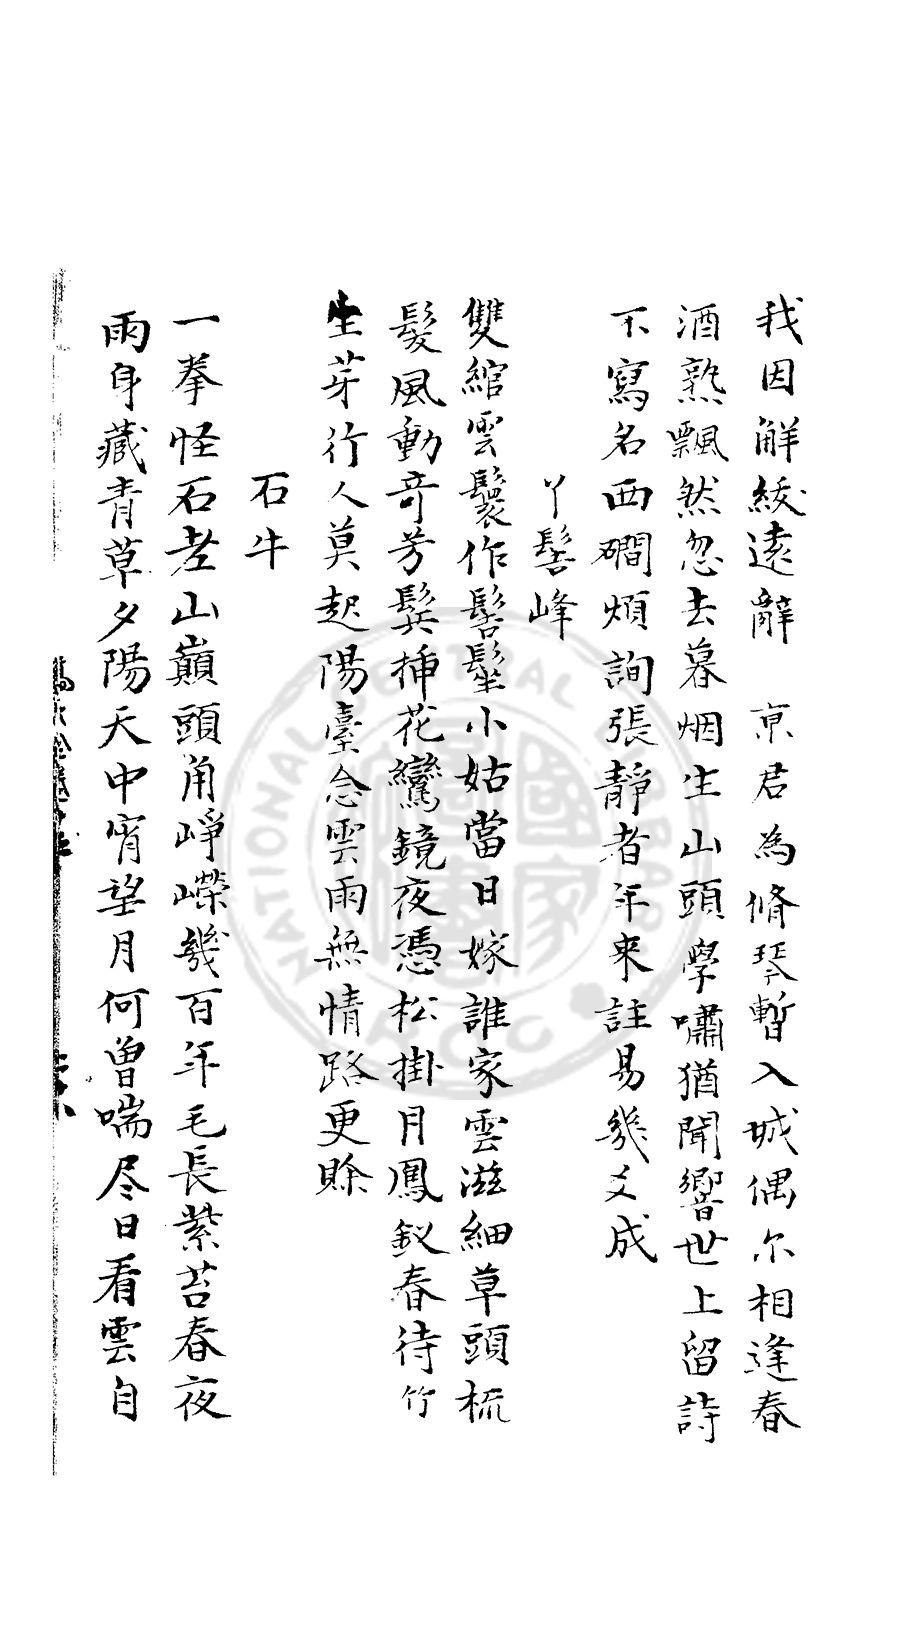 我因解綬遠辭　京君為脩琴暫入城偶尔相逢春
酒熟飄然忽去暮烟生山頭學嘯猶聞響世上留詩
不寫名西磵煩詢張靜者年来註易幾爻成
丫髻峰
雙綰雲鬟作髻髽小姑當日嫁誰家雲滋細草頭梳
髮風動奇芳鬢揷花鸞鏡夜憑松掛月鳳釵春待竹
生芽行人莫起陽臺念雲雨無情路更賒
石牛
一拳怪石老山巔頭角崢嶸幾百年毛長紫苔春夜
雨身藏青草夕陽天中宵望月何曽喘尽日看雲自
NATIONAL CENTRAL LIBRARY
國家圖書館